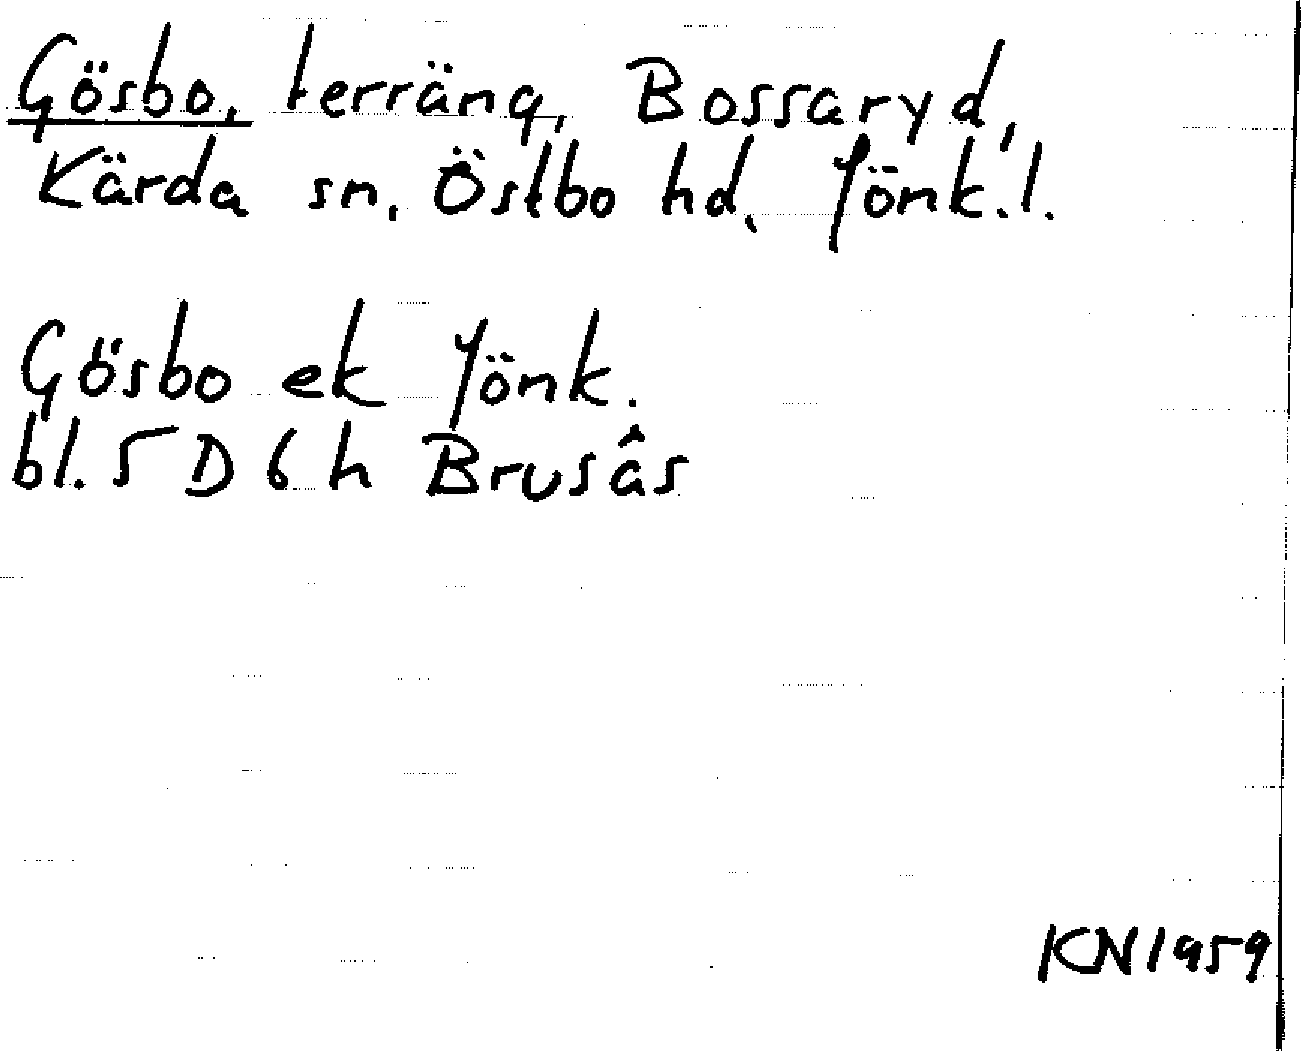 Gösbo, terräng, Bossaryd,
Kärda sn, Östbo hd, Jönk. l.
Gösbo ek Jönk.
bl. 5 D 6 h Brusås
KN 1959